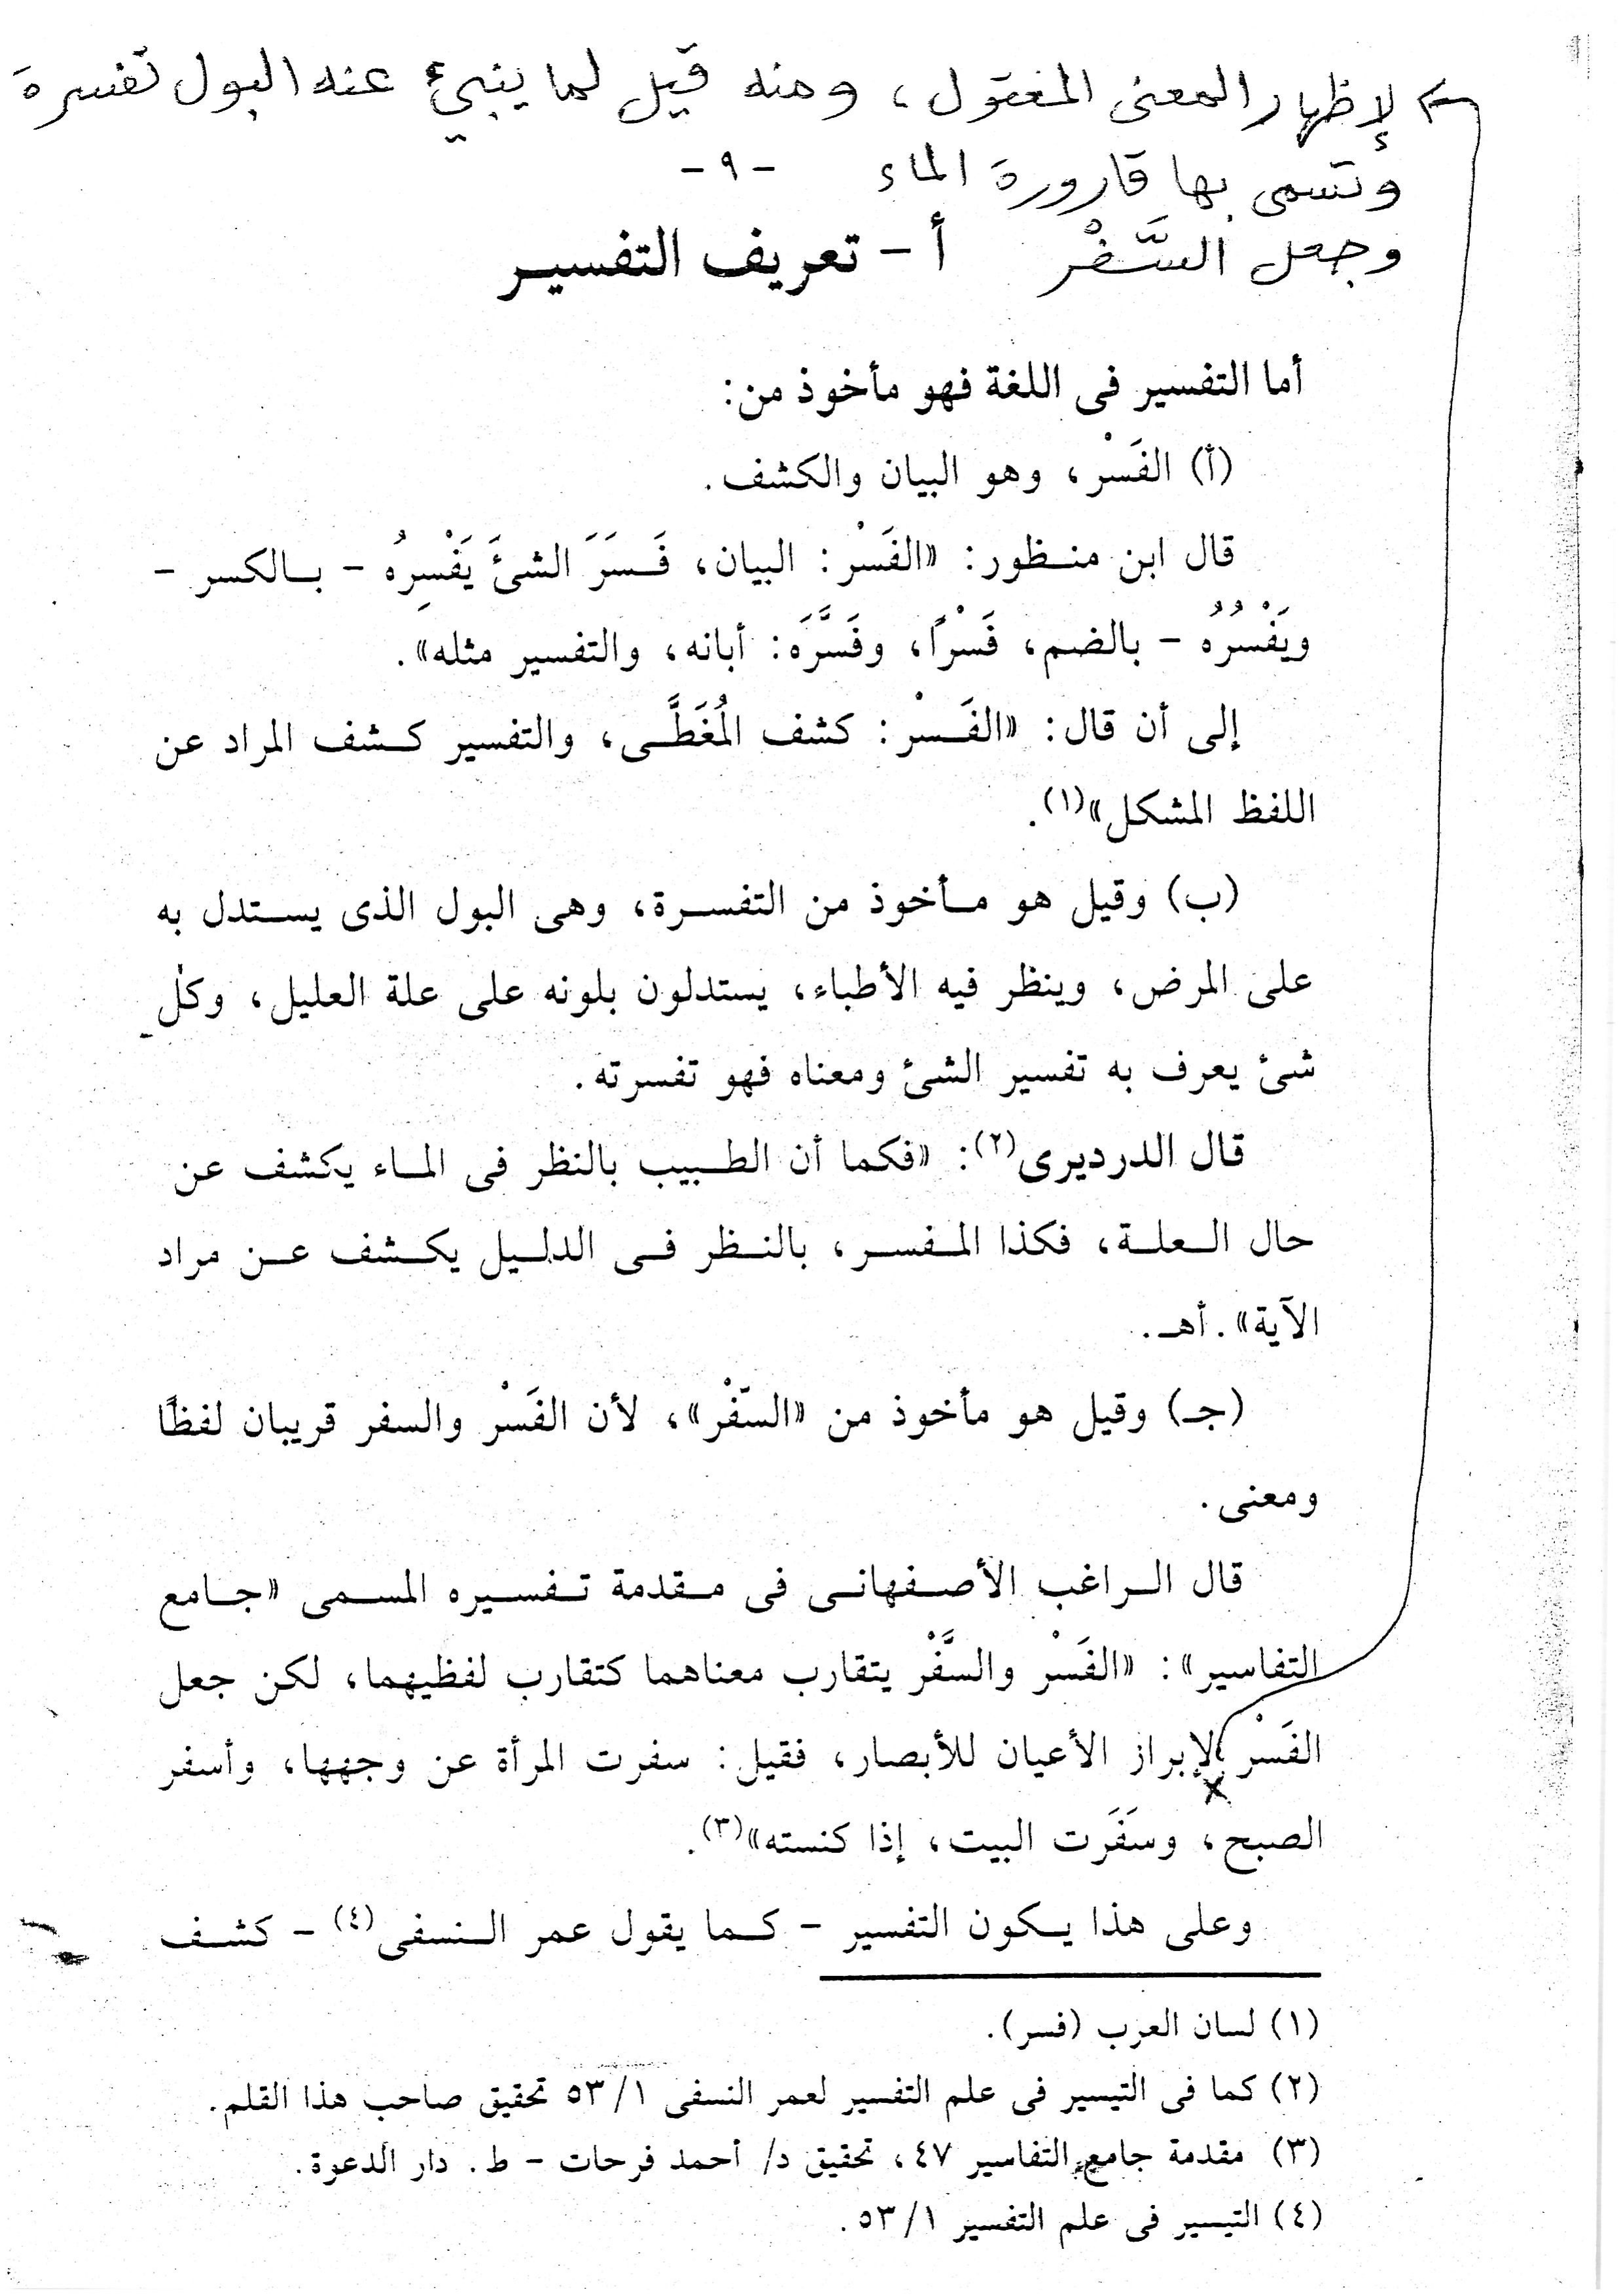 لإظهار المعنى المعقول، ومنه قيل لما ينبئ عنه البول تفسرة
وتسمى بها قارورة الماء
- ٩ -
وجعل السَّفْر
أ - تعريف التفسير
أما التفسير فى اللغة فهو مأخوذ من:
(أ) الفَسْر، وهو البيان والكشف.
قال ابن منظور: «الفَسْر: البيان، فَسَرَ الشئَ يَفْسِرُه - بالكسر -
ويَفْسُرُه - بالضم، فَسْرًا، وفَسَّرَه: أبانه، والتفسير مثله».
إلى أن قال: «الفَسْر: كشف المُغَطَّى، والتفسير كشف المراد عن
اللفظ المشكل»(١).
(ب) وقيل هو مأخوذ من التفسرة، وهى البول الذى يستدل به
على المرض، وينظر فيه الأطباء، يستدلون بلونه على علة العليل، وكل
شئ يعرف به تفسير الشئ ومعناه فهو تفسرته.
قال الدرديرى(٢): «فكما أن الطبيب بالنظر فى الماء يكشف عن
حال العلة، فكذا المفسر، بالنظر فى الدليل يكشف عن مراد
الآية». أهـ.
(جـ) وقيل هو مأخوذ من «السّفْر»، لأن الفَسْر والسفر قريبان لفظًا
ومعنى.
قال الراغب الأصفهانى فى مقدمة تفسيره المسمى «جامع
التفاسير»: «الفَسْر والسَّفْر يتقارب معناهما كتقارب لفظيهما، لكن جعل
الفَسْر لإبراز الأعيان للأبصار، فقيل: سفرت المرأة عن وجهها، وأسفر
الصبح، وسَفَرَت البيت، إذا كنسته»(٣).
وعلى هذا يكون التفسير - كما يقول عمر النسفى(٤) - كشف
(١) لسان العرب (فسر).
(٢) كما فى التيسير فى علم التفسير لعمر النسفى ٥٣/١ تحقيق صاحب هذا القلم.
(٣) مقدمة جامع التفاسير ٤٧، تحقيق د/ أحمد فرحات - ط. دار الدعوة.
(٤) التيسير فى علم التفسير ٥٣/١.